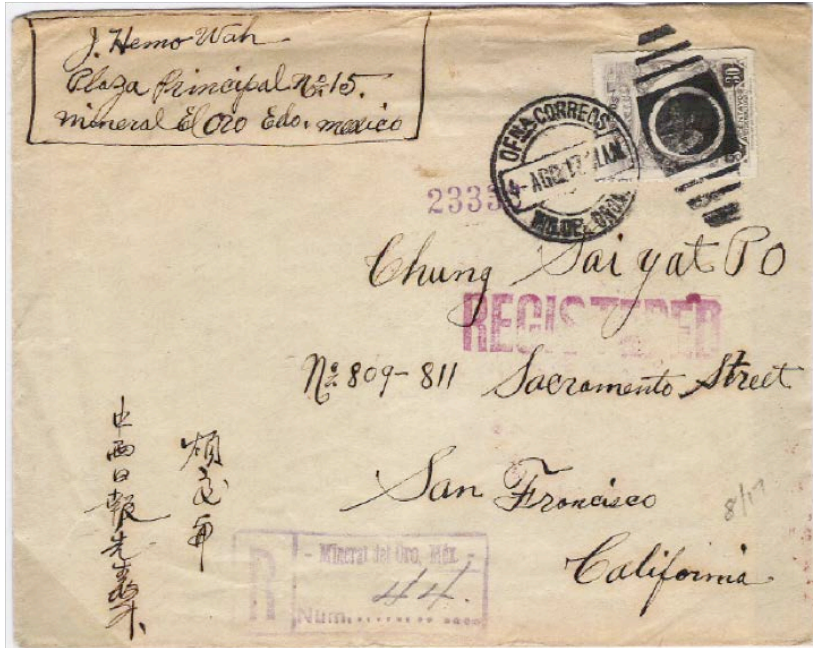 J. Hemo Wah
Plaza Principal No. 15.
Mineral El Oro Edo. Mexico
OFNA. CORREOS
4 - AGO. 17
2335
Chung Sai Yat PO
REGISTERED
No. 809-811 Sacramento Street
San Francisco
California
8/17
中西日報先生
煩交
R
- Mineral del Oro, Méx. -
44.
Núm.